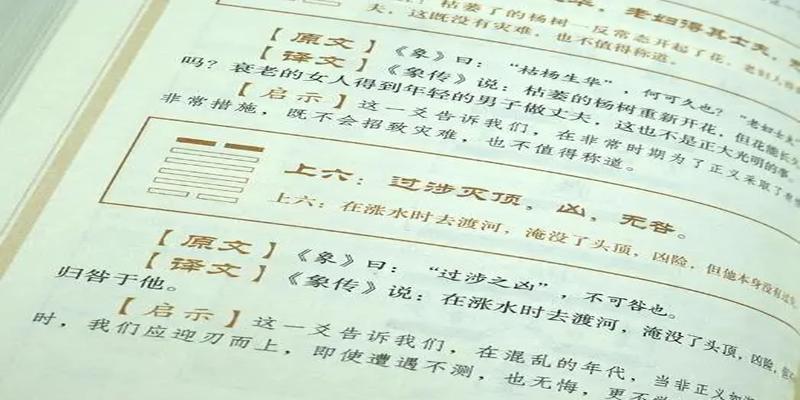 枯萎了的杨树一反常态开起了花,老妇
老妇得其士夫,
夫,这既没有灾难,也不值得称道。
【原文】《象》曰:“枯杨生华”,何可久也?“老妇士夫”
【译文】《象传》说:枯萎的杨树重新开花,但花能长久
吗?衰老的女人得到年轻的男子做丈夫,这也不是正大光明的事。
【启示】这一爻告诉我们,在非常时期为了正义采取了
非常措施,既不会招致灾难,也不值得称道。
上六:过涉灭顶,凶,无咎。
上六:在涨水时去渡河,淹没了头顶,凶险,但他本身没有过
【原文】《象》曰:“过涉之凶”,不可咎也。
【译文】《象传》说:在涨水时去渡河,淹没了头顶,凶险,
归咎于他。
【启示】这一爻告诉我们,在混乱的年代,当非正义如
时,我们应迎刃而上,即使遭遇不测,也无悔,更不